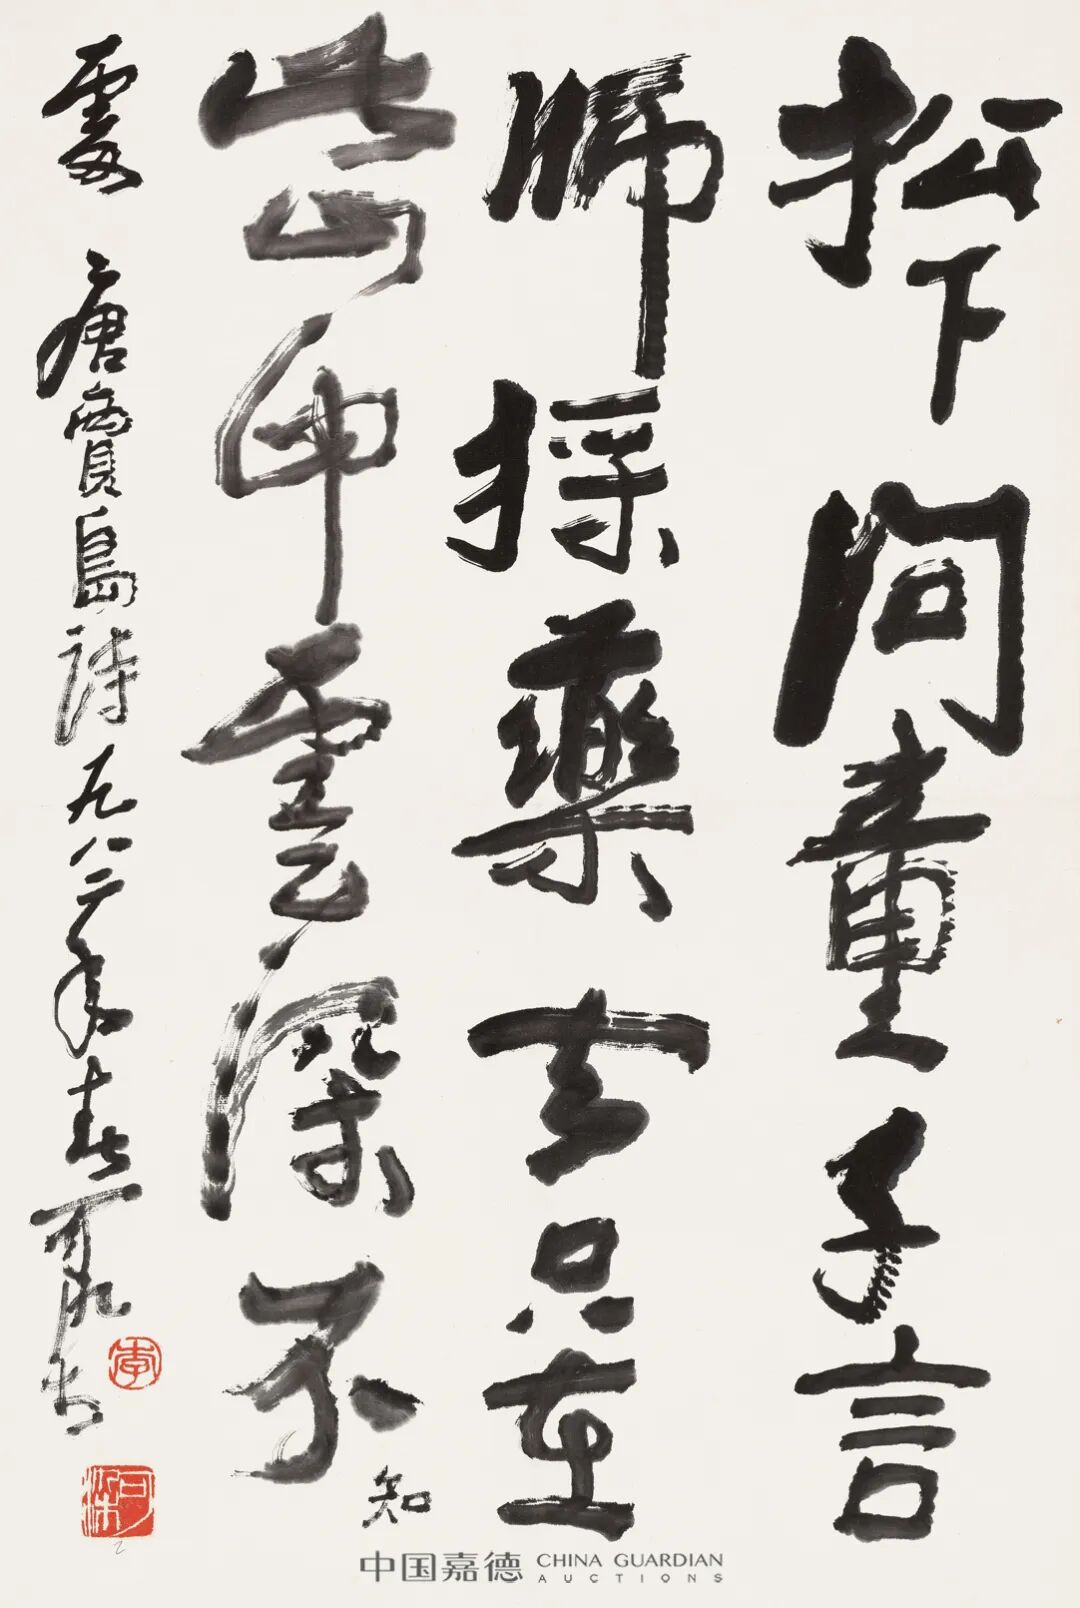 松下問童子言
師採藥去只在
此山中雲深不
知
處 唐賈島詩 一九八二年春 可染書
李
可染
中国嘉德 CHINA GUARDIAN AUCTIONS